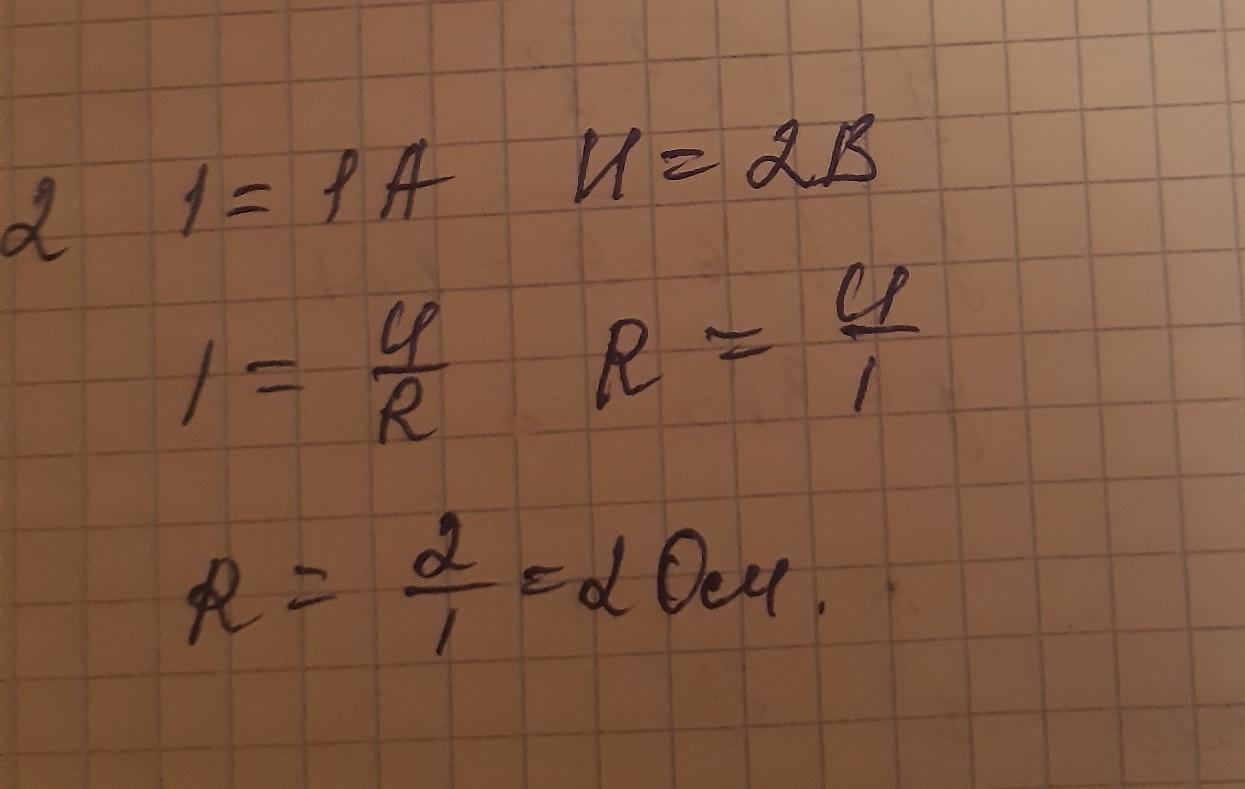 2 I = 1A U = 2В
I = U/R R = U/I
R = 2/1 = 2 Ом.